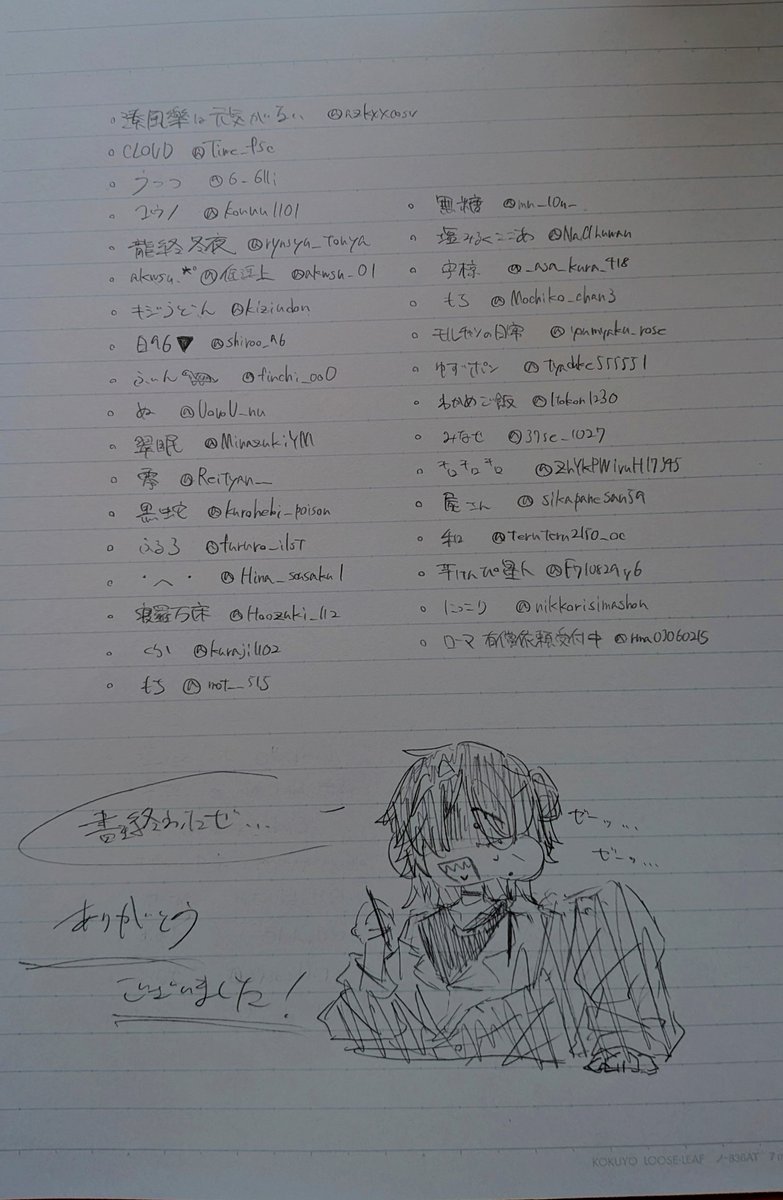 。湊風楽は元気がない @azkxxcosv
。CLOUD @Time_fsc
。うっつ @6_6lli
。コウノ @kouuu1101
。龍終冬夜 @ryusyu_touya
。akwsu.*° @低浮上 @akwsu_01
。キジうどん @kiziudon
。白96▼ @shiroo_96
。ふぃん @finchi_oo0
。ぬ @UoyoU_nu
。翠眠 @MinazukiYM
。零 @Reityan__
。黒蛇 @kurohebi_poison
。ふるろ @fururo_ilst
。・へ・ @Hina_sasaku1
。万床 @Hoozuki_112
。くらげ @kuraji1102
。もち @mot__515
。無糖 @mu_10u_
。塩みるくここあ @NaClhuman
。宇椋 @_na_kura_418
。もち @Mochiko_chan3
。モルチャンの日常 @ipumyaku_rose
。ゆずポン
。わかめご飯 @Itokon1230
。みなせ @37se_1027
。チロチロチロ @ZhYkPWivuH17545
。屋さん @sikapanesan39
。和 @teruteru2150_oc
。芋けんぴ星人 @F710829y6
。にっこり @nikkorisimashou
。ローマ 有償依頼受付中 @rma03060215
書き終わったゼ…
ゼーッ…
ゼーッ…
ありがとう
ございました!
KOKUYO LOOSE-LEAF ノ-836AT 7